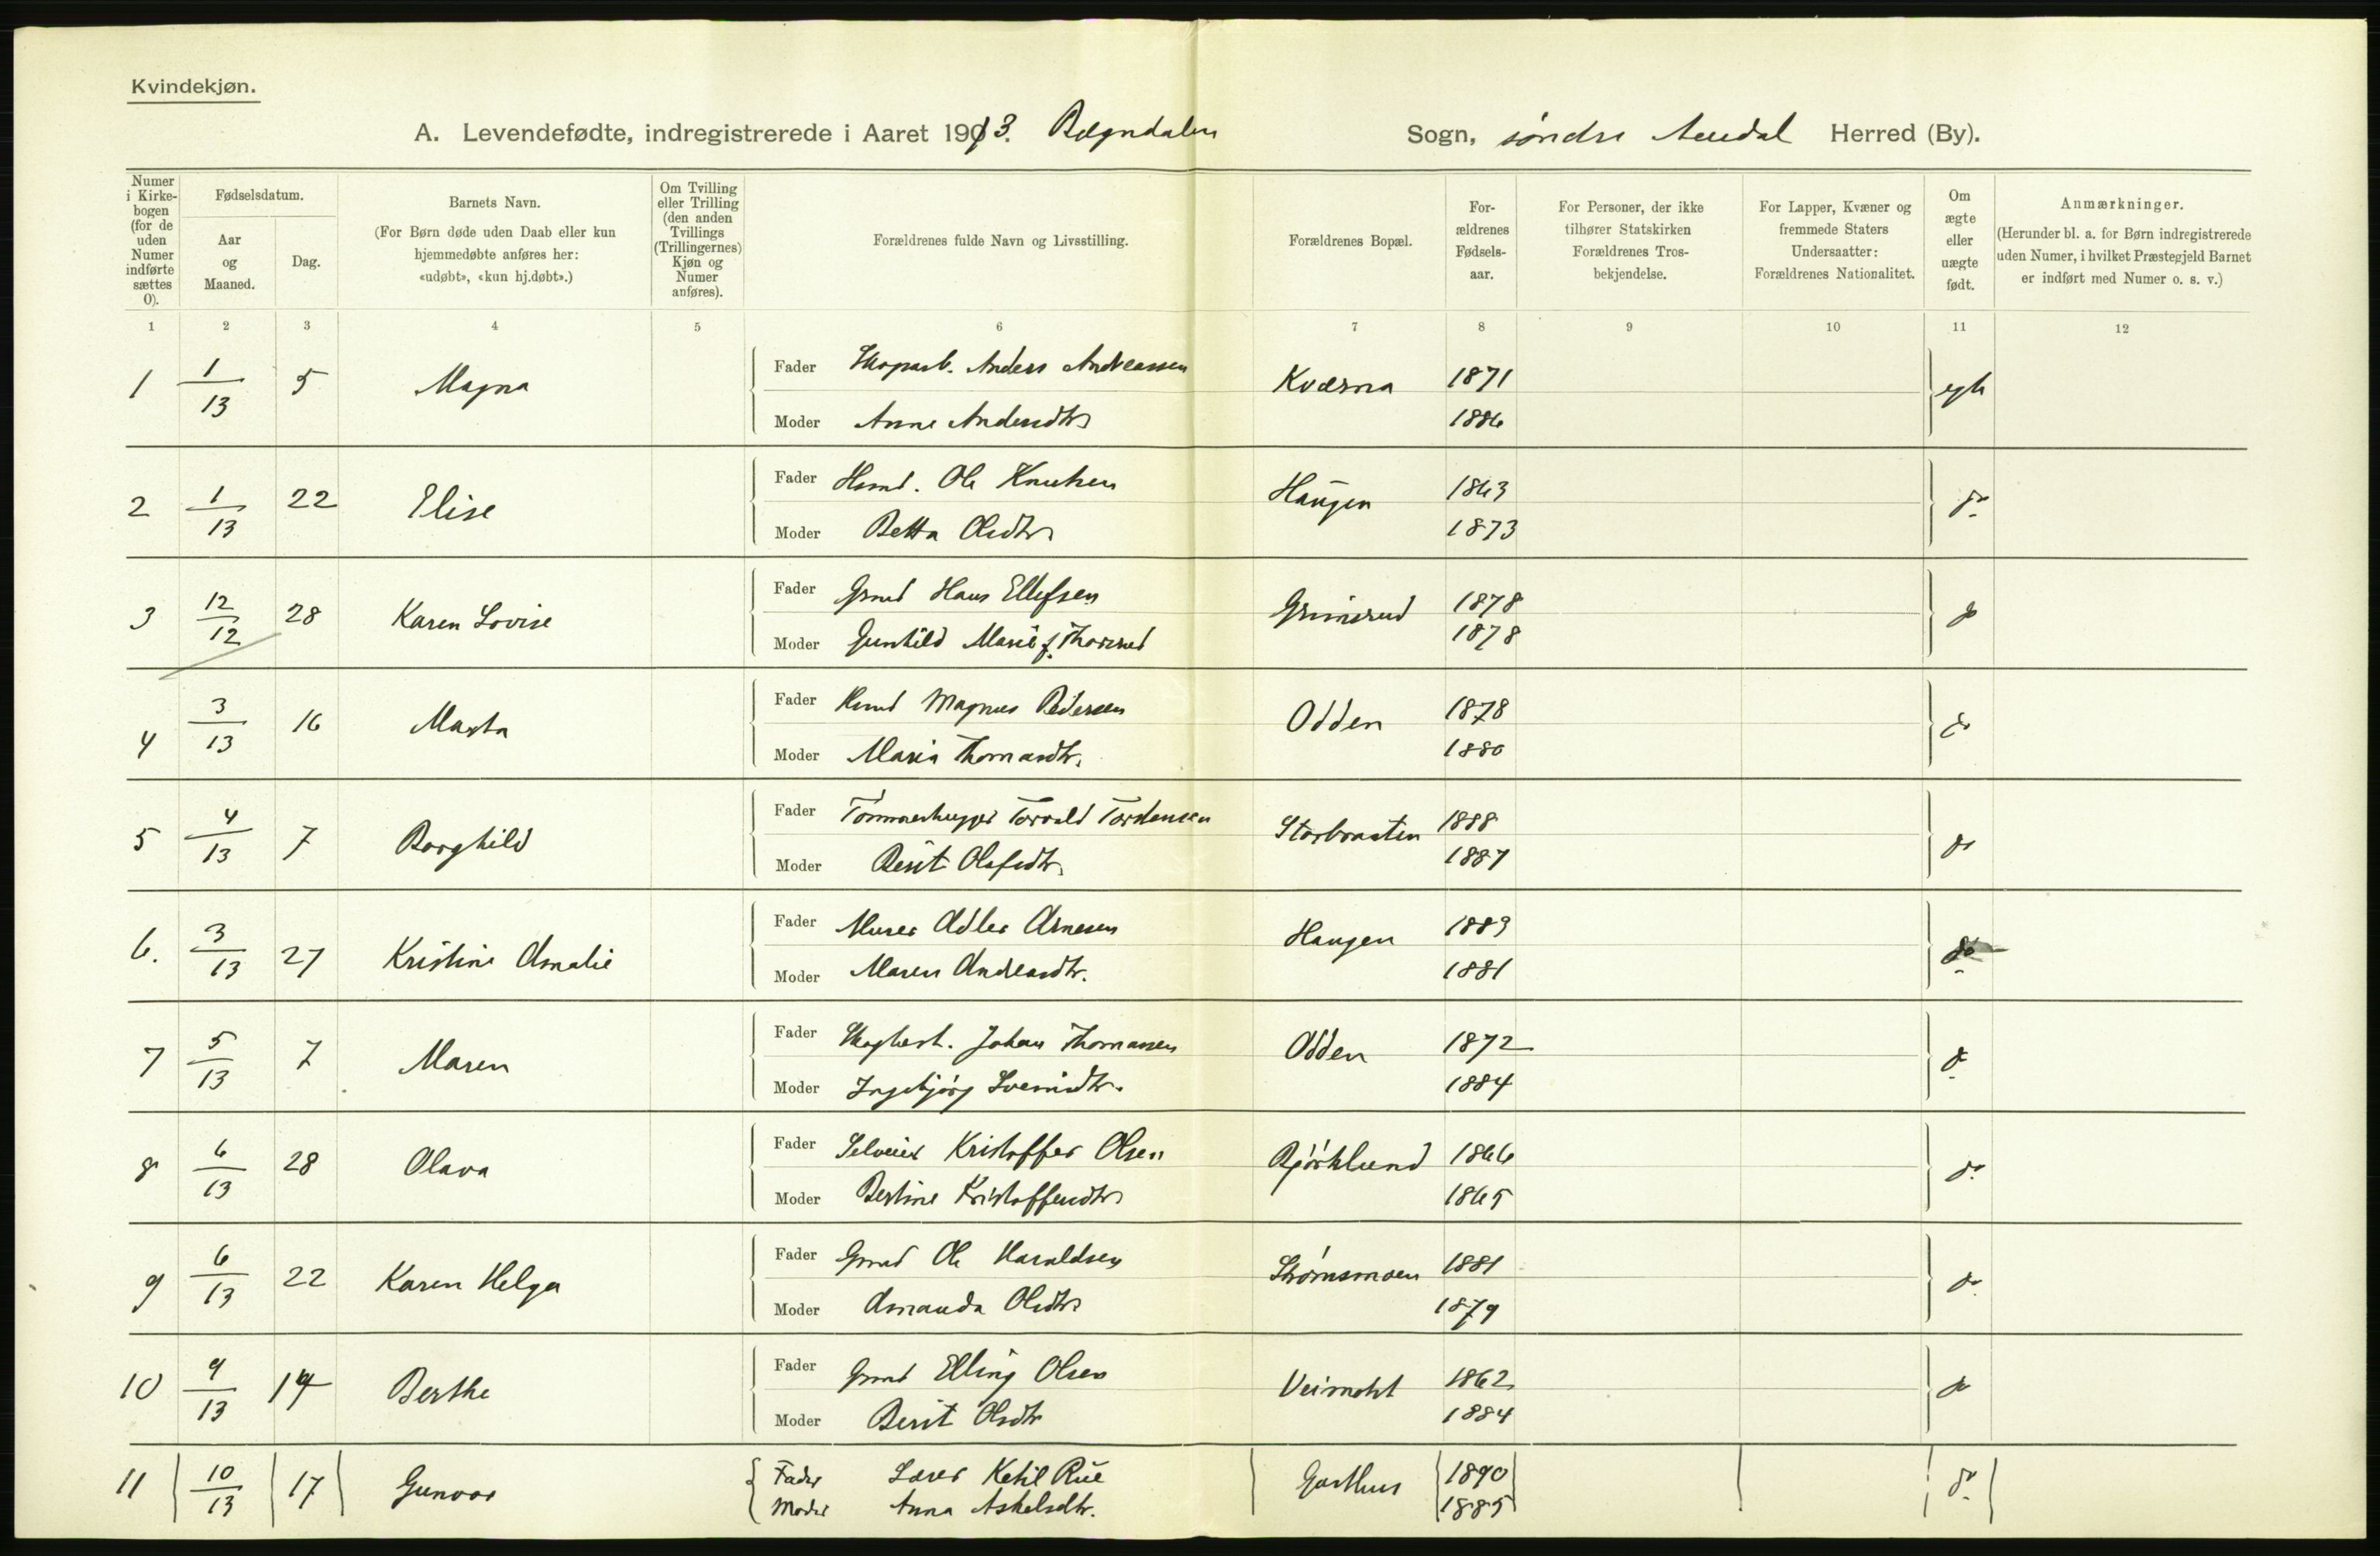 Kvindekjøn.
A. Levendefødte, indregistrerede i Aaret 1913. Bægndalen Sogn, søndre Aurdal Herred (By).
Numer i Kirke-bogen (for de uden Numer indførte sættes 0).
Fødselsdatum.
Aar og Maaned.
Dag.
Barnets Navn.
(For Børn døde uden Daab eller kun hjemmedøbte anføres her: «udøbt», «kun hj.døbt».)
Om Tvilling eller Trilling (den anden Tvillings (Trillingernes) Kjøn og Numer anføres).
Forældrenes fulde Navn og Livsstilling.
Forældrenes Bopæl.
For-ældrenes Fødsels-aar.
For Personer, der ikke tilhører Statskirken Forældrenes Tros-bekjendelse.
For Lapper, Kvæner og fremmede Staters Undersaatter: Forældrenes Nationalitet.
Om ægte eller uægte født.
Anmærkninger.
(Herunder bl. a. for Børn indregistrerede uden Numer, i hvilket Præstegjeld Barnet er indført med Numer o. s. v.)
1 2 3 4 5 6 7 8 9 10 11 12
1 1/13 5 Magna Fader Skogarb. Anders Andreassen Kværna 1871 egte
Moder Anne Andersdtr 1886
2 1/13 22 Elise Fader Husmd. Ole Knutsen Haugen 1863 do
Moder Betta Olsdtr 1873
3 12/12 28 Karen Lovise Fader Grmd Hans Ellefsen Grimsrud 1878 do
Moder Gunhild Marie f. Thorsrud 1878
4 3/13 16 Marta Fader Husmd Magnus Pedersen Odden 1878 do
Moder Maria Thomasdtr. 1880
5 4/13 7 Borghild Fader Tømmerhugger Torvald Tordensen Storbraaten 1888 do
Moder Berit Olafsdtr. 1887
6. 3/13 27 Kristine Amalie Fader Murer Adler Arnesen Haugen 1883 do
Moder Maren Andreasdtr. 1881
7 5/13 7 Maren Fader Johan Thomassen Odden 1872 do
Moder Ingebjørg Svensdtr. 1884
8 6/13 28 Olava Fader Selveier Kristoffer Olsen Bjørklund 1866 do
Moder Bertine Kristoffersdtr 1865
9 6/13 22 Karen Helga Fader Grmd Ole Haraldsen Strømsmoen 1881 do
Moder Amanda Olsdtr 1879
10 9/13 14 Berthe Fader Grmd Elling Olsen 1862 do
Moder Berit Olsdtr 1884
11 10/13 17 Gunvor Fader Lærer Ketil Rue Garthus 1890 do
Moder Anna Askelsdtr. 1885